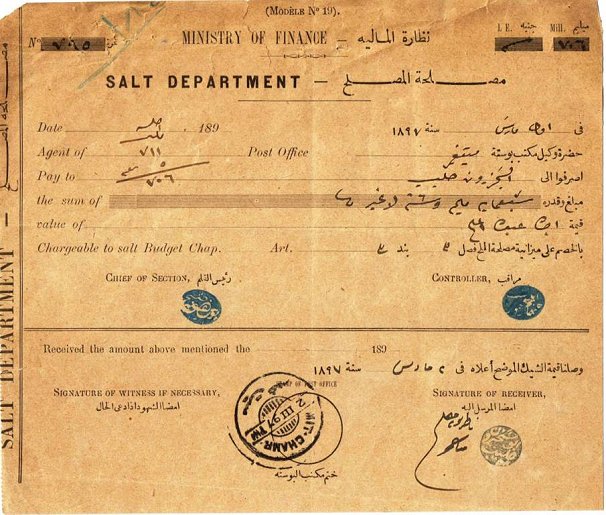 (MODÈLE Nº 19).
Nº ٧٩٥ نمرة
MINISTRY OF FINANCE – نظارة المالیه
£ E. جنيه Mill. مليم
٧٠٦
SALT DEPARTMENT – مصلحة الملح
Date 189
فى اول مارس سنة ١٨٩٧
Agent of ٧١١ Post Office
حضرة وكيل مكتب بوسته ميتغمر
Pay to ٧٠٦
اصرفوا الى
the sum of
مبلغ وقدره سبعمايه مليم وسته لاغير
value of
قيمة
Chargeable to salt Budget Chap. Art.
بالخصم على ميزانية مصلحة الملح فصل ٣ بند ٣
CHIEF OF SECTION, رئيس القلم
CONTROLLER, مراقب
Received the amount above mentioned the 189
وصلنا قيمة الشيك الموضح أعلاه فى ٢ مارس سنة ١٨٩٧
SIGNATURE OF WITNESS IF NECESSARY,
امضا الشهود اذا دعى الحال
OF POST OFFICE
SIGNATURE OF RECEIVER,
امضا المرسل اليه
MIT-CHAMR
2 III 97
ختم مكتب البوسته
SALT DEPARTMENT –
مصلحة الملح